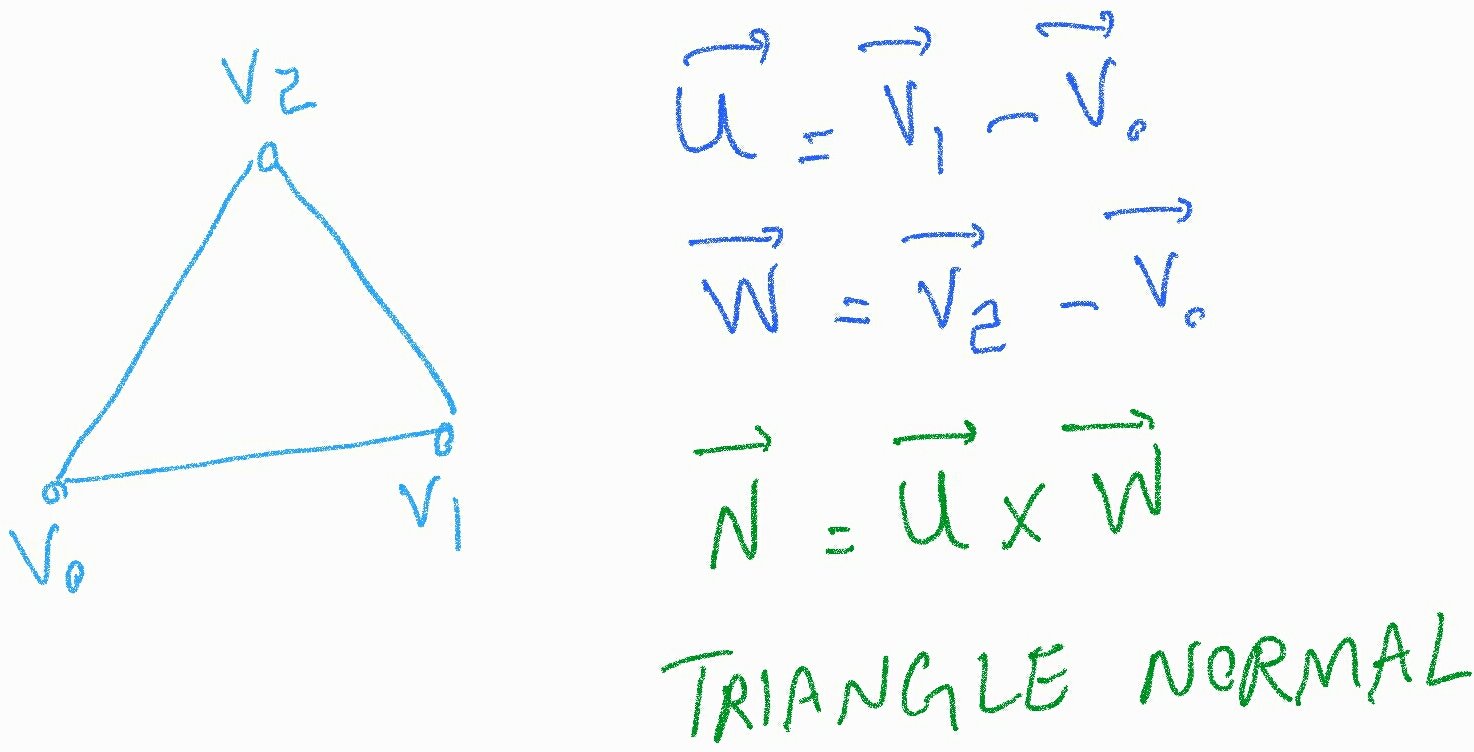 V2
V0
V1
u⃗ = V⃗1 - V⃗0
W⃗ = V⃗2 - V⃗0
N⃗ = u⃗ x W⃗
TRIANGLE NORMAL